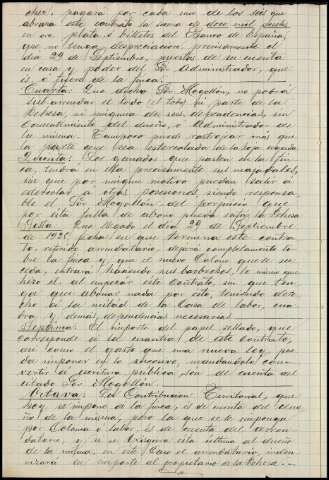 cho, pagará por cada uno de los seis que
abraza este contrato la suma de doce mil
en oro plata o billetes del Banco de España,
que no tenga depreciación precisamente el
día 29 de Septiembre, puestos de su cuenta
en casa y poder del Sr. Administrador, que
es o fuere de la finca.
Cuarta: Que dicho Sr. Mogollón, no podrá
subarrendar el todo (el todo) ni parte de la
Dehesa, ni ninguna de sus dependencias, sin
consentimiento del dueño, o Administrador de
la misma. Tampoco puede rastrojar más que
la parte que sea estercolada de la hoja
Quinta: Los ganados que pasten de la fin-
ca, tendrá en ella precisamente sus majadales,
sin que por ningún motivo puedan salir a
redilear a otras posesiones siendo responsa-
ble el Sr. Mogollón del perjuicio que
por esta falta de abono pueda sufrir la Dehesa
Sexta: Que llegado el día 29 de Septiembre
de 1925, día en que termina este contra-
to, referido arrendatario, dejará completamente li-
bre la finca y que el nuevo Colono que le su-
ceda, estará haciendo sus barbechos, lo mismo que
hizo él al empezar este Contrato, sin que ten-
ga que abonar nada por esto, teniendo dere-
cho a la mitad de la Casa de labor, cua-
dra, y demás dependencias necesarias.
Séptima: El importe del papel sellado, que
corresponde a la cuantía de este contrato,
así como el gasto que una nueva ley, pue-
da imponer en lo sucesivo, mandándolo con-
vertir a escritura pública son de cuenta del
citado Sr. Mogollón.
Octava: La Contribución Territorial, que
hoy se impone a la finca, es de cuenta del due-
ño de la misma, pero la que se le imponga
por Colonia o labor, es de cuenta del arren-
datario, y si se exigiera esta última al dueño
de la misma, en este caso el arrendatario, indem-
nizará su importe al propietario de la Dehesa